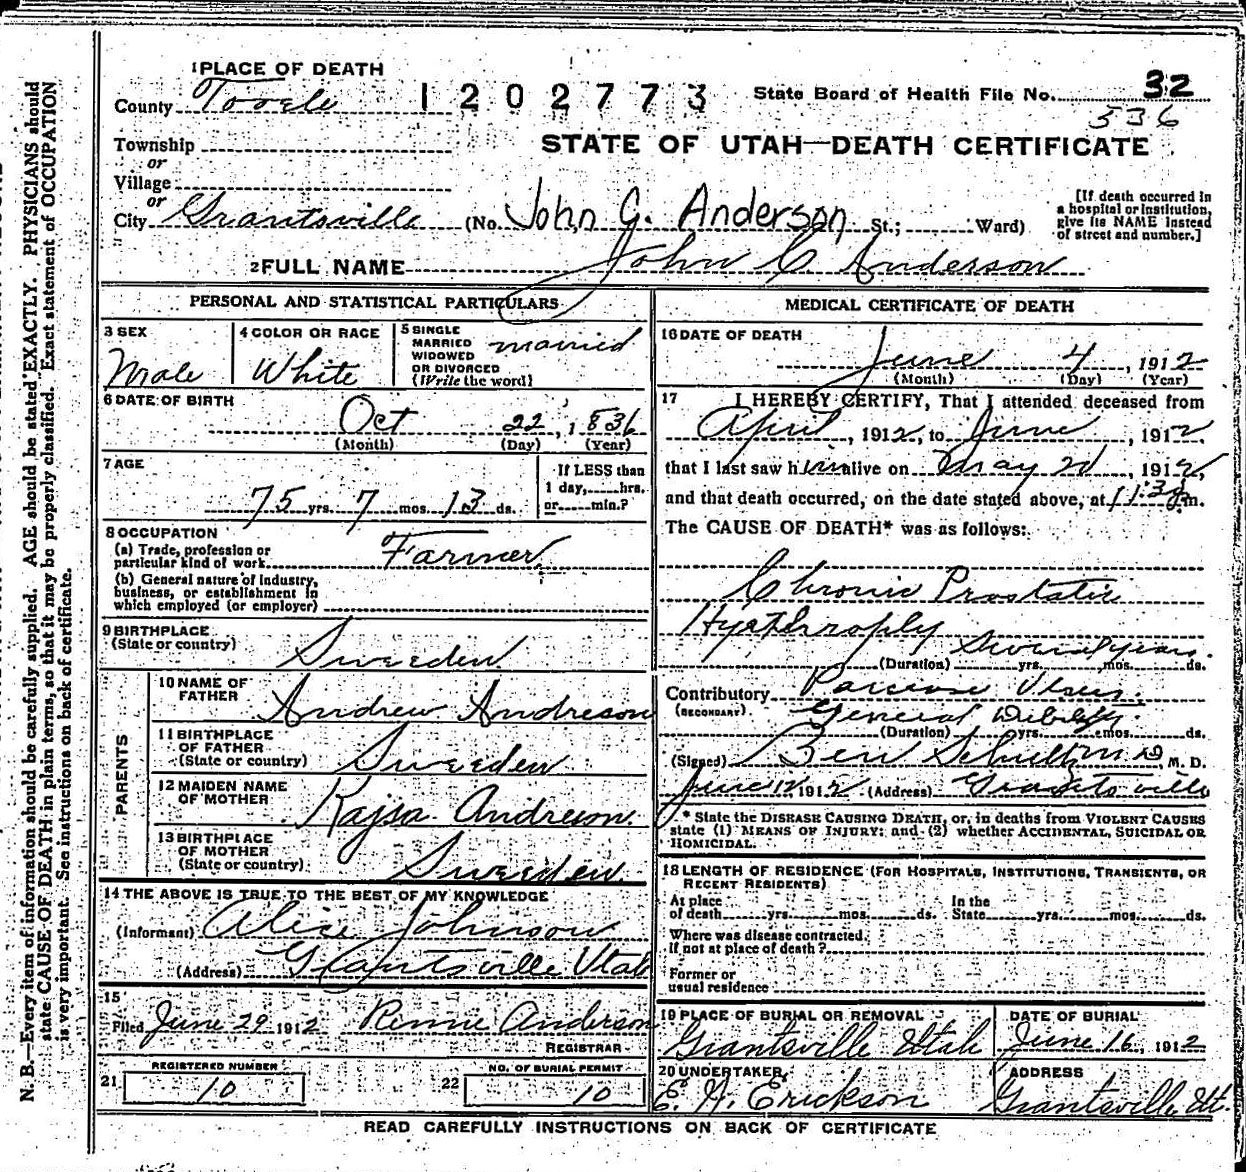 1 PLACE OF DEATH
County Tooele 1202773 State Board of Health File No. 32
336
Township STATE OF UTAH—DEATH CERTIFICATE
or
Village
or
City Grantsville (No. John G. Anderson St.; Ward) [If death occurred in a hospital or institution, give its NAME instead of street and number.]
2 FULL NAME John C Anderson
PERSONAL AND STATISTICAL PARTICULARS
3 SEX Male
4 COLOR OR RACE White
5 SINGLE MARRIED WIDOWED OR DIVORCED (Write the word) married
6 DATE OF BIRTH
Oct 22, 1836
(Month) (Day) (Year)
7 AGE
75 yrs. 7 mos. 13 ds.
If LESS than 1 day, hrs. or min.?
8 OCCUPATION
(a) Trade, profession or particular kind of work Farmer
(b) General nature of industry, business, or establishment in which employed (or employer)
9 BIRTHPLACE
(State or country) Sweeden
PARENTS
10 NAME OF FATHER Andrew Andreson
11 BIRTHPLACE OF FATHER (State or country) Sweeden
12 MAIDEN NAME OF MOTHER Kajsa Andreson
13 BIRTHPLACE OF MOTHER (State or country) Sweeden
14 THE ABOVE IS TRUE TO THE BEST OF MY KNOWLEDGE
(Informant) Alice Johnson
(Address) Grantsville Utah
15
Filed June 29 1912 Anderson
REGISTRAR
21 REGISTERED NUMBER 10
22 NO. OF BURIAL PERMIT 10
MEDICAL CERTIFICATE OF DEATH
16 DATE OF DEATH
June 4, 1912
(Month) (Day) (Year)
17 I HEREBY CERTIFY, That I attended deceased from
April, 1912, to June, 1912,
that I last saw him alive on May 2d, 1912,
and that death occurred, on the date stated above, at 11:30 m.
The CAUSE OF DEATH* was as follows:
Chronic Prostatic
Hypthroply
(Duration) Several years yrs. mos. ds.
Contributory
(SECONDARY) General Debility
(Duration) yrs. mos. ds.
(Signed) Ben M.D., M. D.
June 12 1912 (Address) Grantsville
* State the DISEASE CAUSING DEATH, or, in deaths from VIOLENT CAUSES
state (1) MEANS OF INJURY; and (2) whether ACCIDENTAL, SUICIDAL OR
HOMICIDAL.
18 LENGTH OF RESIDENCE (FOR HOSPITALS, INSTITUTIONS, TRANSIENTS, OR
RECENT RESIDENTS)
At place of death yrs. mos. ds. In the State yrs. mos. ds.
Where was disease contracted,
if not at place of death?
Former or
usual residence
19 PLACE OF BURIAL OR REMOVAL Grantsville Utah
DATE OF BURIAL June 16, 1912
20 UNDERTAKER E. N. Erickson
ADDRESS Grantsville, Ut.
READ CAREFULLY INSTRUCTIONS ON BACK OF CERTIFICATE
N. B.—Every item of information should be carefully supplied. AGE should be stated EXACTLY. PHYSICIANS should
state CAUSE OF DEATH in plain terms, so that it may be properly classified. Exact statement of OCCUPATION
is very important. See instructions on back of certificate.